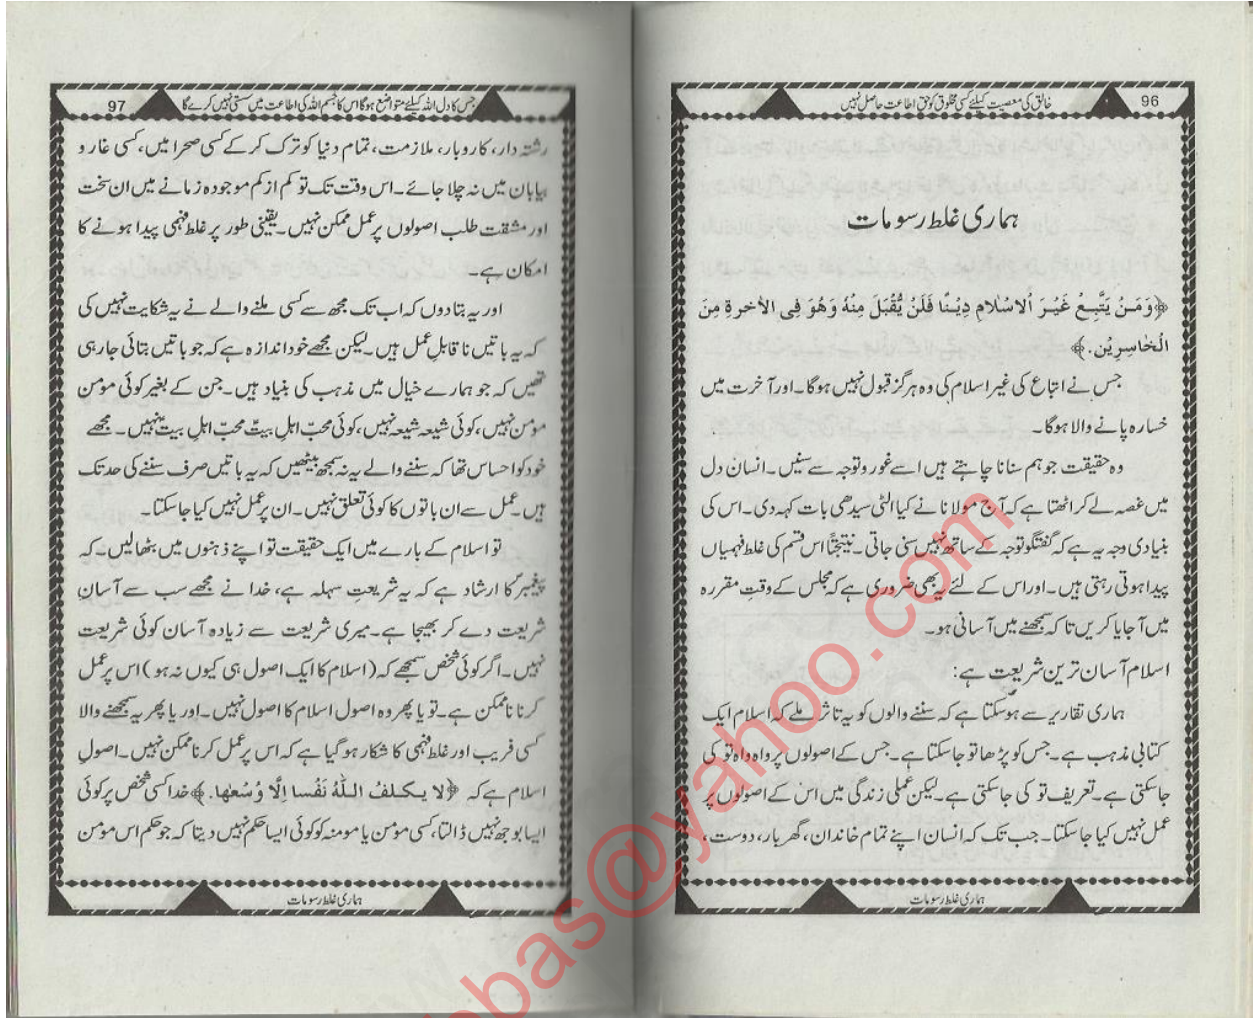 96
خالق کی معصیت کیلئے کسی مخلوق کو حق اطاعت حاصل نہیں
ہماری غلط رسومات
﴿وَمَنْ يَتَّبِعْ غَيْرَ اُلاسْلامِ دِيْنًا فَلَنْ يُّقْبَلَ مِنْهُ وَهُوَ فِى الأخرةِ مِنَ
الْخٰاسِرِيْن.﴾
جس نے اتباع کی غیر اسلام کی وہ ہرگز قبول نہیں ہوگا۔ اور آخرت میں
خسارہ پانے والا ہوگا۔
وہ حقیقت جو ہم سنانا چاہتے ہیں اسے غور و توجہ سے سنیں۔ انسان دل
میں غصہ لے کر اٹھتا ہے کہ آج مولانا نے کیا الٹی سیدھی بات کہہ دی۔ اس کی
بنیادی وجہ یہ ہے کہ گفتگو توجہ کے ساتھ نہیں سنی جاتی۔ نتیجتاً اس قسم کی غلط فہمیاں
پیدا ہوتی رہتی ہیں۔ اور اس کے لئے یہ بھی ضروری ہے کہ مجلس کے وقتِ مقررہ
میں آجایا کریں تاکہ سمجھنے میں آسانی ہو۔
اسلام آسان ترین شریعت ہے:
ہماری تقاریر سے ہوسکتا ہے کہ سننے والوں کو یہ تاثر ملے کہ اسلام ایک
کتابی مذہب ہے۔ جس کو پڑھا تو جاسکتا ہے۔ جس کے اصولوں پر واہ واہ تو کی
جاسکتی ہے۔ تعریف تو کی جاسکتی ہے۔ لیکن عملی زندگی میں اس کے اصولوں پر
عمل نہیں کیا جاسکتا۔ جب تک کہ انسان اپنے تمام خاندان، گھر بار، دوست،
ہماری غلط رسومات
97
جس کا دل اللہ کیلئے متواضع ہوگا اس کا جسم اللہ کی اطاعت میں سستی نہیں کرے گا
رشتہ دار، کاروبار، ملازمت، تمام دنیا کو ترک کر کے کسی صحرا میں، کسی غار و
بیابان میں نہ چلا جائے۔ اس وقت تک تو کم از کم موجودہ زمانے میں ان سخت
اور مشقت طلب اصولوں پر عمل ممکن نہیں۔ یقینی طور پر غلط فہمی پیدا ہونے کا
امکان ہے۔
اور یہ بتادوں کہ اب تک مجھ سے کسی ملنے والے نے یہ شکایت نہیں کی
کہ یہ باتیں ناقابلِ عمل ہیں۔ لیکن مجھے خود اندازہ ہے کہ جو باتیں بتائی جارہی
تھیں کہ جو ہمارے خیال میں مذہب کی بنیاد ہیں۔ جن کے بغیر کوئی مومن
مومن نہیں، کوئی شیعہ شیعہ نہیں، کوئی محبّ اہلِ بیتؑ محبّ اہلِ بیتؑ نہیں۔ مجھے
خود کو احساس تھا کہ سننے والے یہ نہ سمجھ بیٹھیں کہ یہ باتیں صرف سننے کی حد تک
ہیں۔ عمل سے ان باتوں کا کوئی تعلق نہیں۔ ان پر عمل نہیں کیا جاسکتا۔
تو اسلام کے بارے میں ایک حقیقت تو اپنے ذہنوں میں بٹھالیں۔ کہ
پیغمبرؐ کا ارشاد ہے کہ یہ شریعتِ سہلہ ہے، خدا نے مجھے سب سے آسان
شریعت دے کر بھیجا ہے۔ میری شریعت سے زیادہ آسان کوئی شریعت
نہیں۔ اگر کوئی شخص سمجھے کہ (اسلام کا ایک اصول ہی کیوں نہ ہو) اس پر عمل
کرنا ناممکن ہے۔ تو یا پھر وہ اصول اسلام کا اصول نہیں۔ اور یا پھر یہ سمجھنے والا
کسی فریب اور غلط فہمی کا شکار ہوگیا ہے کہ اس پر عمل کرنا ممکن نہیں۔ اصولِ
اسلام ہے کہ ﴿لا يـكـلفُ اللّٰهُ نَفْسا اِلَّا وُسْعها.﴾ خدا کسی شخص پر کوئی
ایسا بوجھ نہیں ڈالتا، کسی مومن یا مومنہ کو کوئی ایسا حکم نہیں دیتا کہ جو حکم اس مومن
ہماری غلط رسومات
abas@yahoo.com